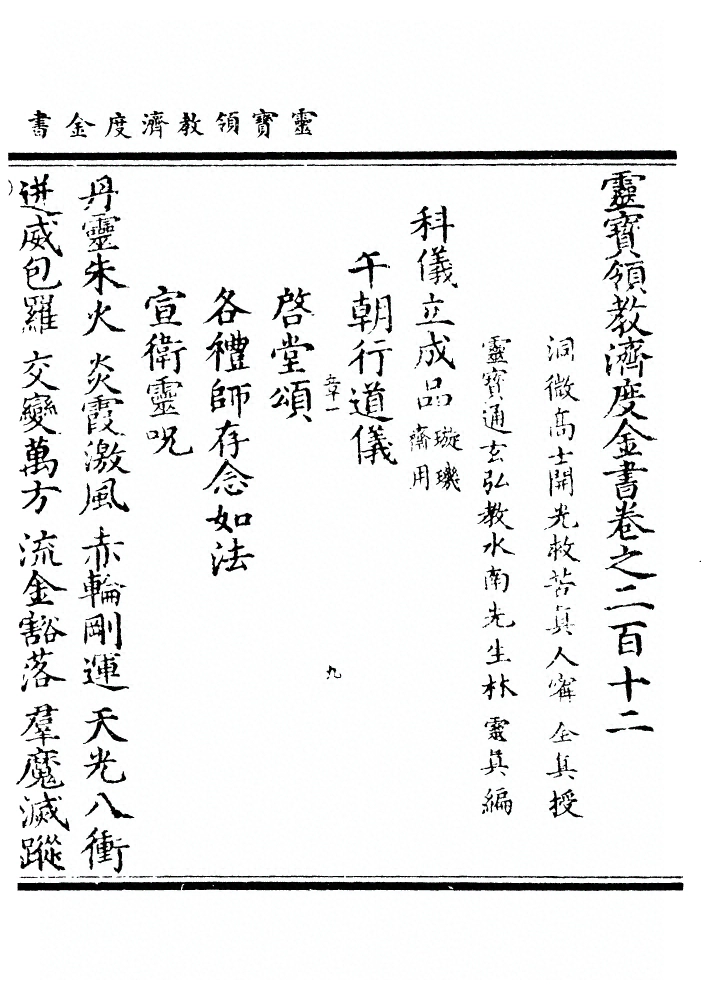 靈寶領教濟度金書
靈寶領教濟度金書卷之二百十二
洞微高士開光救苦真人寗 全真授
靈寶通玄弘教水南先生林 靈真編
科儀立成品 璇璣齋用
午朝行道儀
章一 九
啓堂頌
各禮師存念如法
宣衛靈呪
丹靈朱火 炎霞激風 赤輪剛運 天光八衝
迸威包羅 交變萬方 流金豁落 羣魔滅蹤